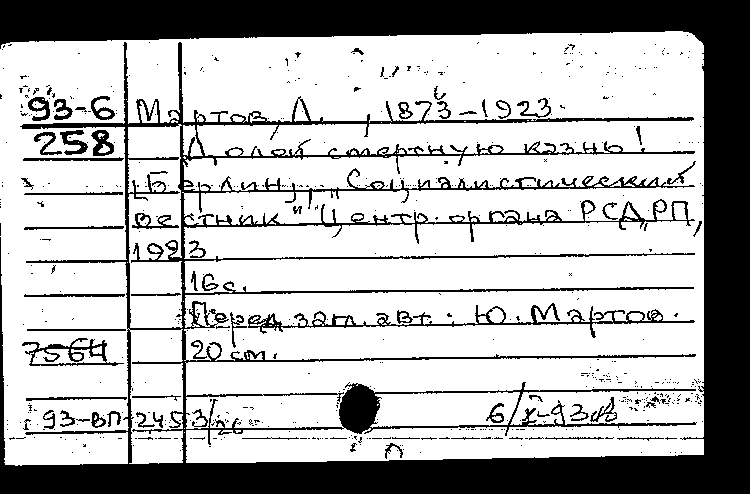 93-6 Мартов, Л. , 1873-1923.
258 Долой смертную казнь!
[Берлин], "Социалистический
вестник" Центр. органа РСДРП,
1923.
16 с.
Перед загл. авт.: Ю. Мартов.
7564 20 cm.
93-ВП-2453/26 6/X-93